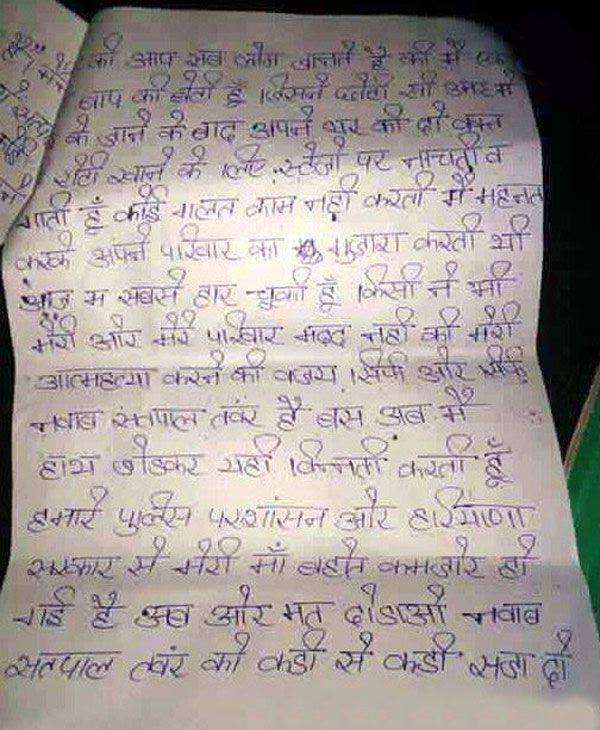 की आप सब लोग जानते है की मै एक
बाप की बेटी हूँ जिसने छोटी सी उम्र मे
के जाने के बाद अपने घर की दो वक्त
रोटी खाने के लिए स्टेजो पर नाचती व
गाती हूँ कोई गलत काम नही करती मै महनत
करके अपने परिवार का गुजारा करती थी
आज म सबसे हार चुकी हूँ किसी ने भी
मेरी और मेरे परिवार मदद नही की मेरी
आत्महत्या करने की वजय सिर्फ और सिर्फ
नवाब सतपाल तवंर है बस अब मै
हाथ जोडकर यही विन्नती करती हूँ
हमारे पुलिस परशांसन और हरियाणा
सरकार से मेरी माँ बहोत कमजोर हो
गई है अब और मत दोडाओ नवाब
सतपाल तवंर को कडी से कडी सजा दो